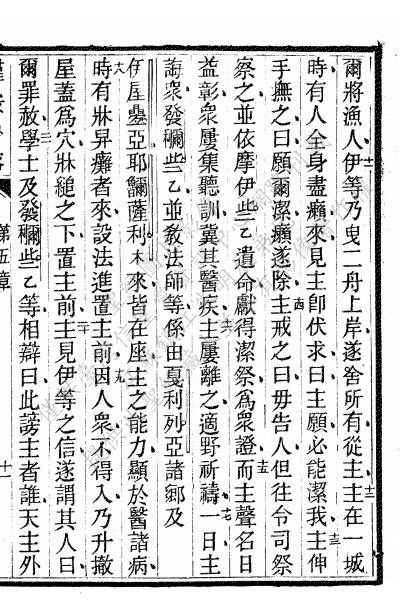 爾將漁人伊等乃曳二舟上岸遂舍所有從主主在一城
時有人全身盡癩來見主卽伏求曰主願必能潔我主伸
手撫之曰願爾潔癩遂除主戒之曰毋告人但往令司祭
察之並依摩伊些乙遺命獻得潔祭爲衆證而主聲名日
益彰衆屢集聽訓冀其醫疾主屢離之適野祈禱一日主
誨衆發礪些乙並敎法師等係由戛利列亞諸鄉及
伊屋疊亞耶薩利木來皆在座主之能力顯於醫諸病
時有牀舁癱者來設法進置主前因人衆不得入乃升撤
屋蓋爲穴牀縋之下置主前主見伊等之信遂謂其人曰
爾罪赦學士及發礪些乙等相辯曰此謗主者誰天主外
第五章 十一